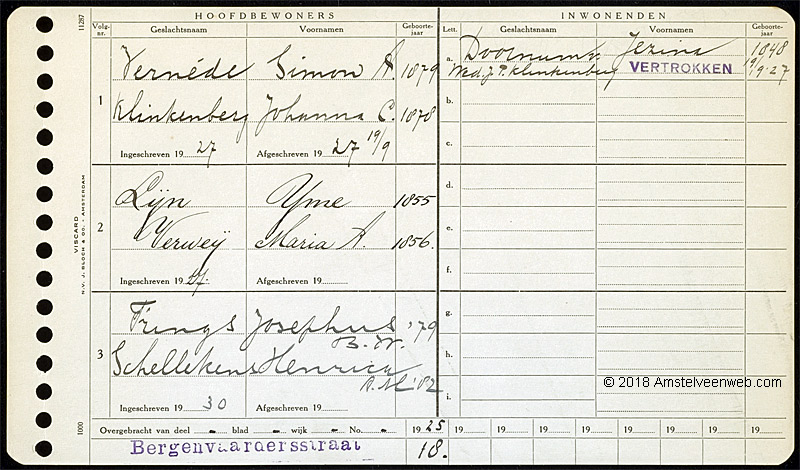 11287
HOOFDBEWONERS
INWONENDEN
Volg-nr. Geslachtsnaam Voornamen Geboorte-jaar
Lett. Geslachtsnaam Voornamen Geboorte-jaar
1
Vernéde Simon A. 1879
Klinkenberg Johanna C. 1878
Ingeschreven 19 27 Afgeschreven 19 27 19/9
2
Lijn Yme 1855
Verweij Maria A. 1856.
Ingeschreven 19 27. Afgeschreven 19
3
Frings Josephus '79
B. W.
Schellekens Henrica
A.M. '82
Ingeschreven 19 30 Afgeschreven 19
a. Doornum v. Jezina 1848
Wed. J. P. Klinkenberg VERTROKKEN 19/9-27
b.
c.
d.
e.
f.
g.
h.
i.
© 2018 Amstelveenweb.com
VISCARD
N.V. J. BLOCH & CO. - AMSTERDAM
1000
Overgebracht van deel - blad - wijk - No. - 19 25 19 19 19 19 19 19 19 19
Bergenvaardersstraat 18.